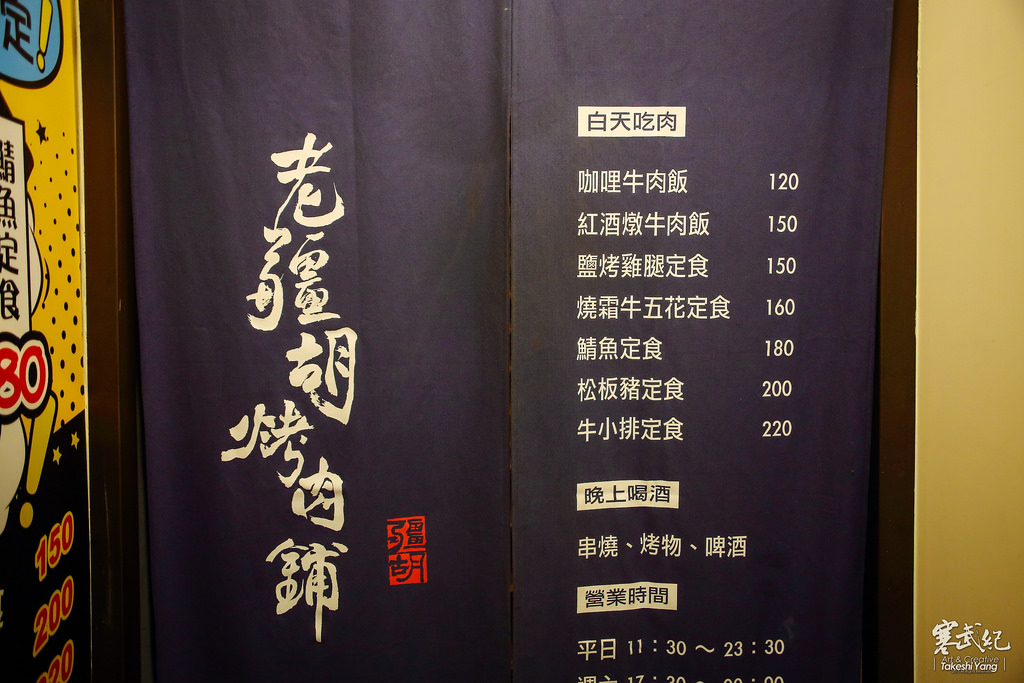 定!
鯖魚定食
80
150
200
老疆胡烤肉舖
疆胡
白天吃肉
咖哩牛肉飯 120
紅酒燉牛肉飯 150
鹽烤雞腿定食 150
燒霜牛五花定食 160
鯖魚定食 180
松板豬定食 200
牛小排定食 220
晚上喝酒
串燒、烤物、啤酒
營業時間
平日 11:30 ~ 23:30
寒武紀
Art & Creative
Takeshi Yang